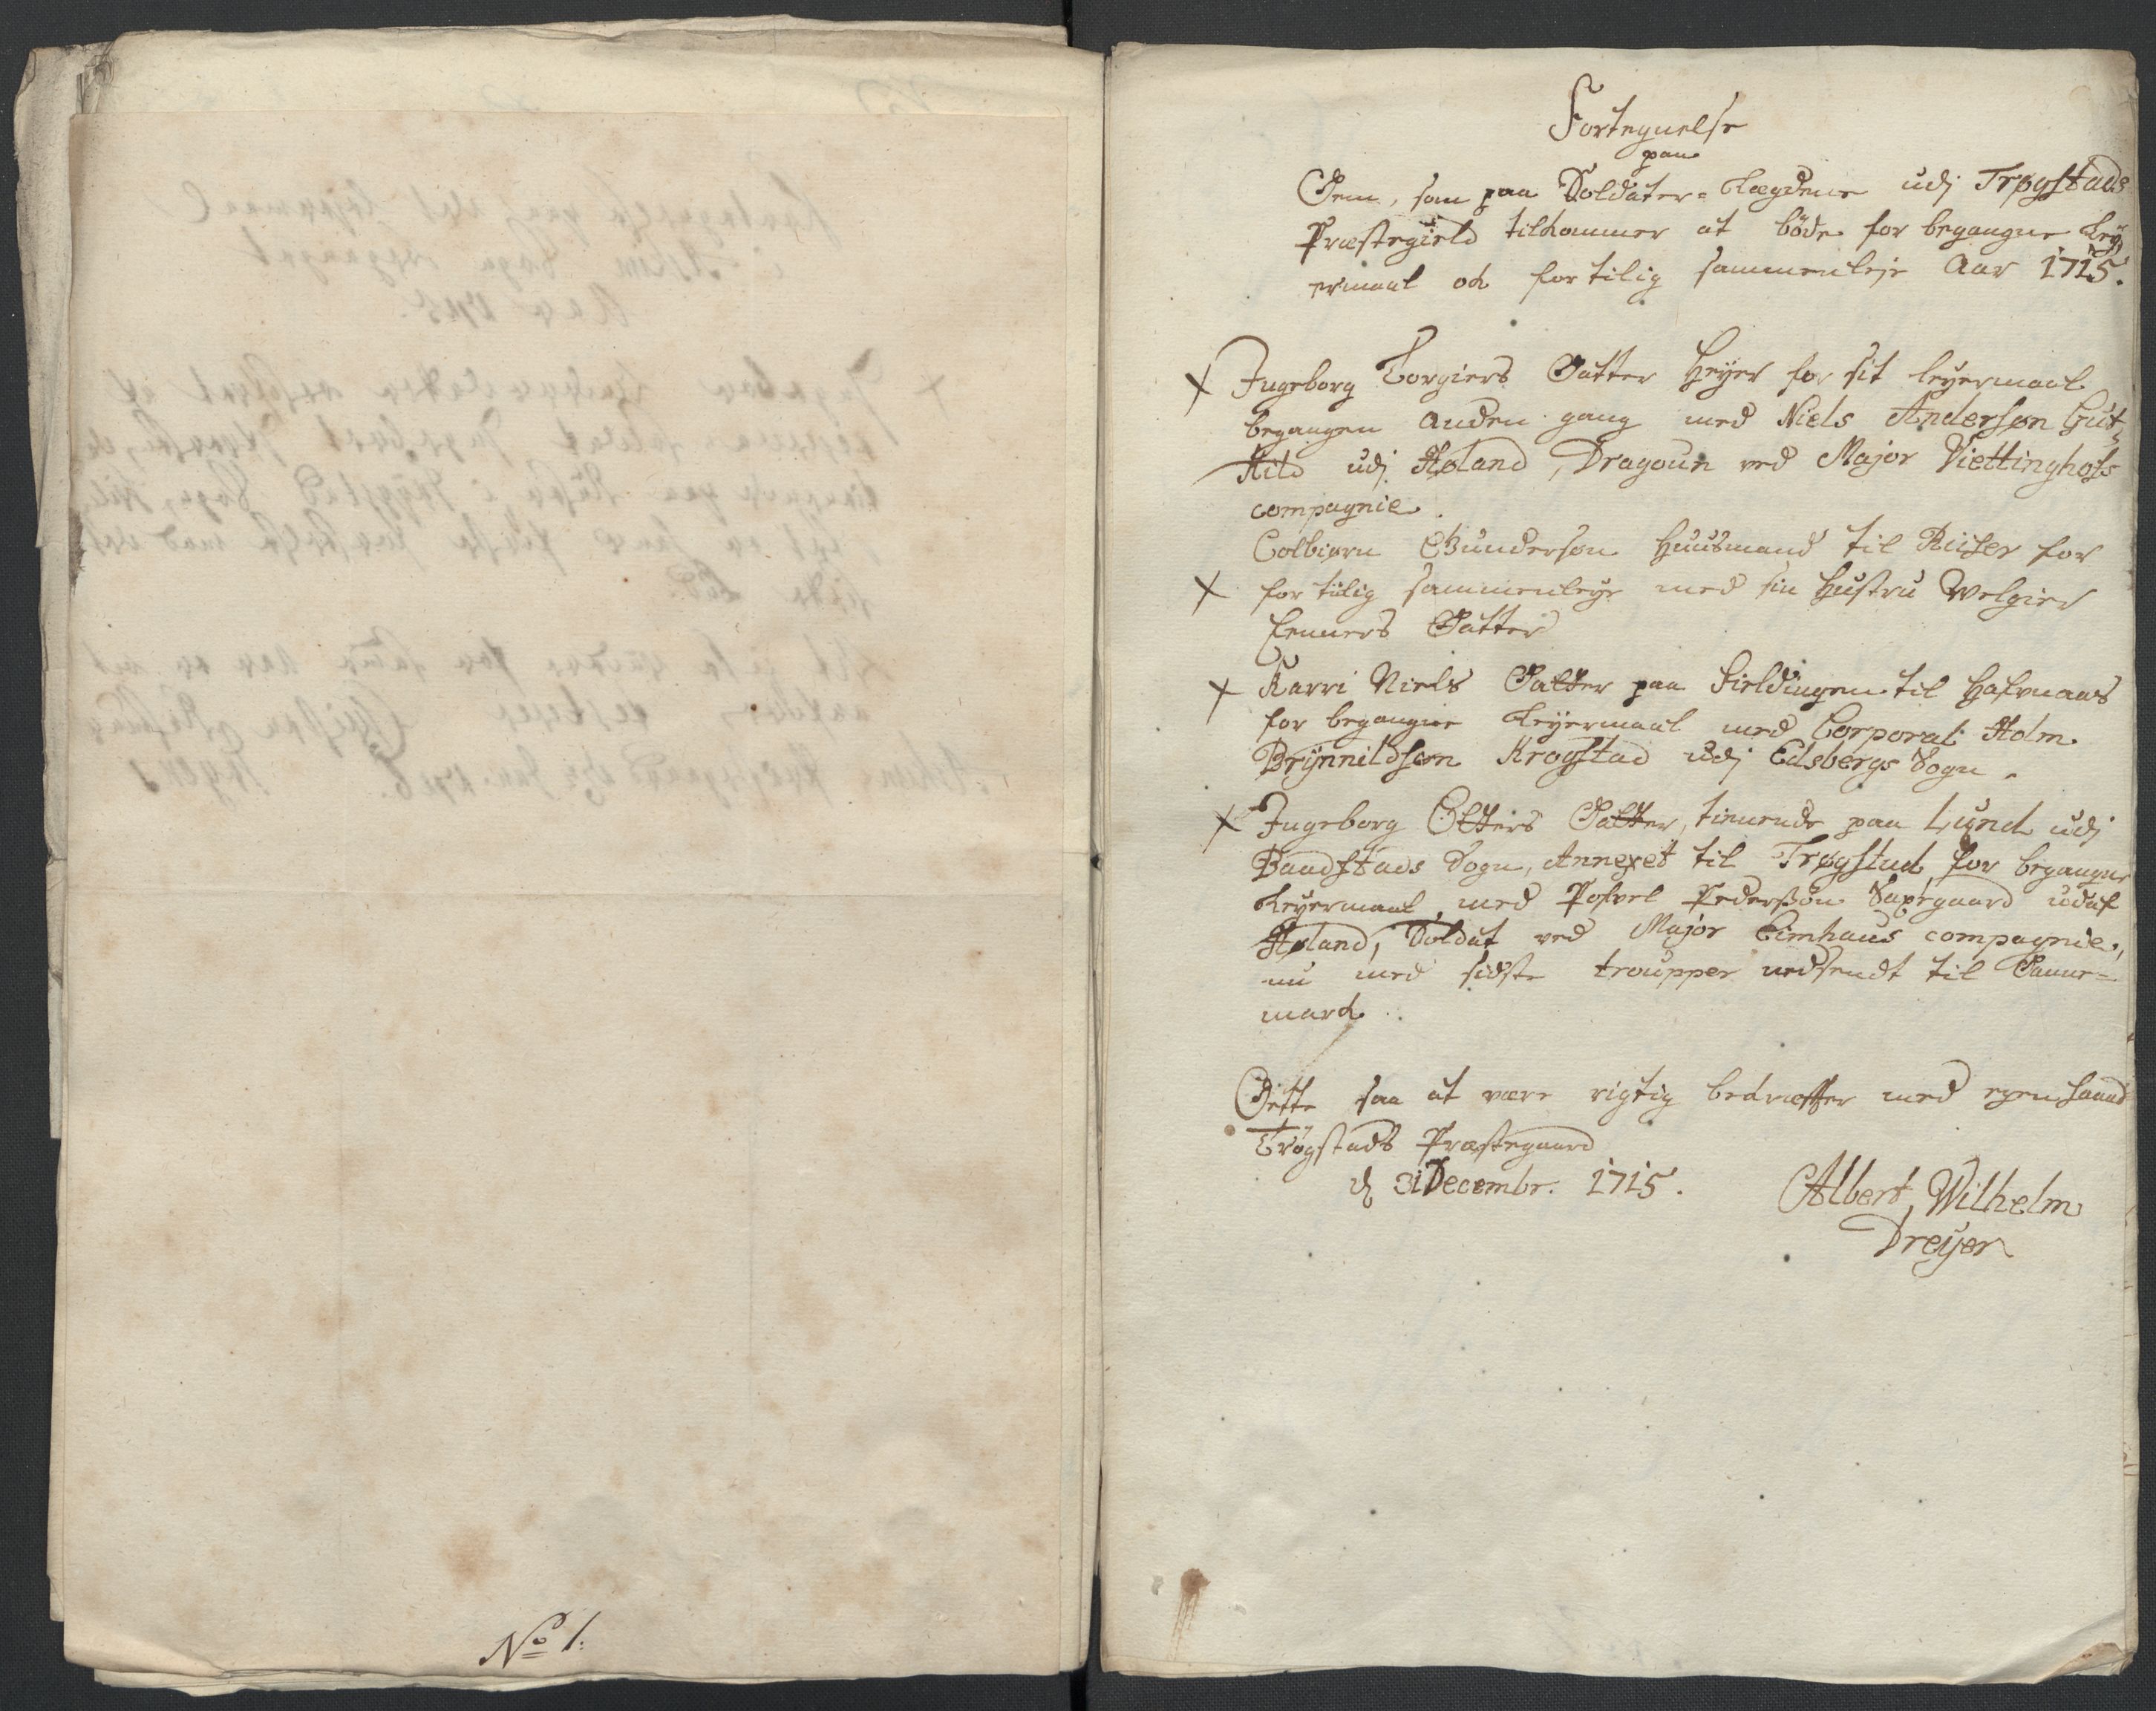 No 1.
Fortegnelse
paa
Dem, som paa Soldater-Lægdene udj Trøgstads
Præstegield tilkommer at böde for begangne Leÿ,
ermaal och for tilig sammenleje Aar 1715.
Ingeborg Torgiers Datter Heÿer for sit leÿermaal
begangen anden gang med Niels Andersøn
udj Høland, Dragoun ved Major Viettinghofs
compagnie.
Colbiørn Gundersøn Huusmand til Riiser for
for tiilig sammenleÿe med sin Hustru Welgier
Datter
Karri Niels Datter paa Fieldingen til Hafnaas
for begangne Leÿermaal med Corporal Holm
Brÿnnildsøn Krogstad udj Edsbergs Sogn.
Ingeborg Datter, tienende paa Lund udj
Baadstads Sogn, Annexet til Trøgstad, for begangne
Leÿermaal med Pofvel Pedersøn udaf
Høland, Soldat ved Major compagnie,
nu med sidste troupper nedsendt til Danne-
march.
Dette saa at være rigtig bekræfter med egen Haand
Trögstads Præstegaard
d 31 Decembr. 1715.
Albert Wilhelm
Dreÿer